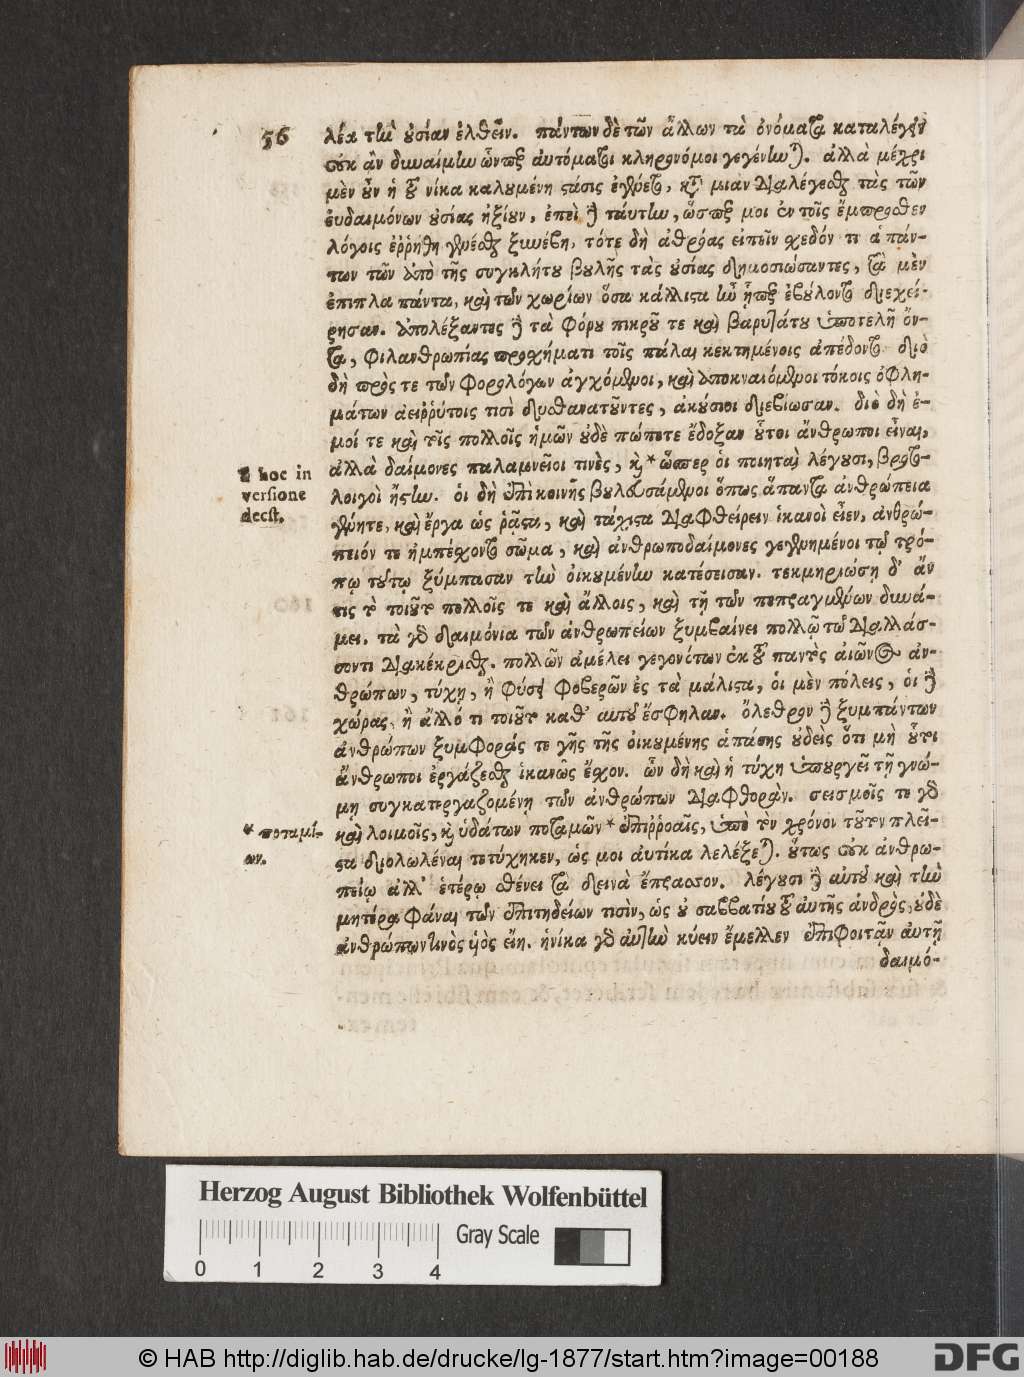 56
λέα τὴν οὐσίαν ἐλθεῖν. πάντων δὲ τῶν ἄλλων τὰ ὀνόματα καταλέγειν
οὐκ ἂν δυναίμην ὧνπερ αὐτόματοι κληρονόμοι γεγένηνται. ἀλλὰ μέχρι
μὲν οὖν ἡ τοῦ νίκα καλουμένη στάσις ἐγένετο, κατὰ μίαν διαλέγεσθαι τὰς τῶν
εὐδαιμόνων οὐσίας ἠξίουν, ἐπεὶ δὲ ταύτην, ὥσπερ μοι ἐν τοῖς ἔμπροσθεν
λόγοις ἐῤῥήθη γενέσθαι ξυνέβη, τότε δὴ ἀθρόας εἰπεῖν σχεδόν τι ἁπάν-
των τῶν ἀπὸ τῆς συγκλήτου βουλῆς τὰς οὐσίας δημοσιώσαντες, τὰ μὲν
ἔπιπλα πάντα, καὶ τῶν χωρίων ὅσα κάλλιστα ἦν ᾗπερ ἐβούλοντο διεχεί-
ρησαν. ἀπολέξαντες δὲ τὰ φόρου πικροῦ τε καὶ βαρυτάτου ὑποτελῆ ὄν-
τα, φιλανθρωπίας προσχήματι τοῖς πάλαι κεκτημένοις ἀπέδοντο διὸ
δὴ πρός τε τῶν φορολόγων ἀγχόμενοι, καὶ ἀποκναιόμενοι τόκοις ὀφλη-
μάτων ἀειῤῥύτοις τισὶ δυσθανατοῦντες, ἀκούσιοι διεβίωσαν. διὸ δὴ ἐ-
μοί τε καὶ τοῖς πολλοῖς ἡμῶν οὐδὲ πώποτε ἔδοξαν οὗτοι ἄνθρωποι εἶναι,
ἀλλὰ δαίμονες παλαμνεῖοι τινὲς, καὶ * ὥσπερ οἱ ποιηταὶ λέγουσι, βροτο-
λοιγοὶ ἤστην. οἱ δὴ ἐπὶ κοινῆς βουλευσάμενοι ὅπως ἅπαντα ἀνθρώπεια
γένητε, καὶ ἔργα ὡς ῥᾷστα, καὶ τάχιστα διαφθείρειν ἱκανοὶ εἶεν, ἀνθρώ-
πειόν τε ἠμπέχοντο σῶμα, καὶ ἀνθρωποδαίμονες γεγενημένοι τῷ τρό-
πῳ τούτῳ ξύμπασαν τὴν οἰκουμένην κατέσεισαν. τεκμηριώσῃ δ' ἄν
τις τὸ τοιοῦτο πολλοῖς τε καὶ ἄλλοις, καὶ τῇ τῶν πεπραγμένων δυνά-
μει. τὰ γὰρ δαιμόνια τῶν ἀνθρωπείων ξυμβαίνει πολλῷ τῷ διαλλάσ-
σοντι διακέκρισθαι. πολλῶν ἀμέλει γεγονότων ἐκ τοῦ παντὸς αἰῶνος ἀν-
θρώπων, τύχῃ, ἢ φύσει φοβερῶν ἐς τὰ μάλιστα, οἱ μὲν πόλεις, οἱ δὲ
χώρας, ἢ ἄλλό τι τοιοῦτο καθ' αὑτοὺς ἔσφηλαν. ὄλεθρον δὲ ξυμπάντων
ἀνθρώπων ξυμφοράς τε γῆς τῆς οἰκουμένης ἁπάσης οὐδεὶς ὅτι μὴ οὗτοι
ἄνθρωποι ἐργάζεσθαι ἱκανῶς ἔσχον. ὧν δὴ καὶ ἡ τύχη ὑπουργεῖ τῇ γνώ-
μῃ συγκατεργαζομένη τῶν ἀνθρώπων διαφθοράν. σεισμοῖς τε γὰρ
καὶ λοιμοῖς, καὶ ὑδάτων ποταμῶν * ἐπιῤῥοαῖς, ὑπὸ τὸν χρόνον τοῦτον πλεῖ-
στα διολωλέναι τετύχηκεν, ὡς μοι αὐτίκα λελέξεται. οὕτως οὐκ ἀνθρω-
πείῳ ἀλλ' ἑτέρῳ σθένει τὰ δεινὰ ἔπρασσον. λέγουσι δὲ αὐτοῦ καὶ τὴν
μητέρα φάναι τῶν ἐπιτηδείων τισὶν, ὡς οὐ σαββατίου τοῦ αὐτῆς ἀνδρὸς, οὐδὲ
ἀνθρώπων τινὸς υἱὸς εἴη. ἡνίκα γὰρ αὐτὸν κύειν ἔμελλεν ἐπιφοιτᾶν αὐτῇ
δαιμό-
hoc in
versione
deest.
* ποταμί-
ων.
Herzog August Bibliothek Wolfenbüttel
Gray Scale
0 1 2 3 4
© HAB http://diglib.hab.de/drucke/lg-1877/start.htm?image=00188
DFG